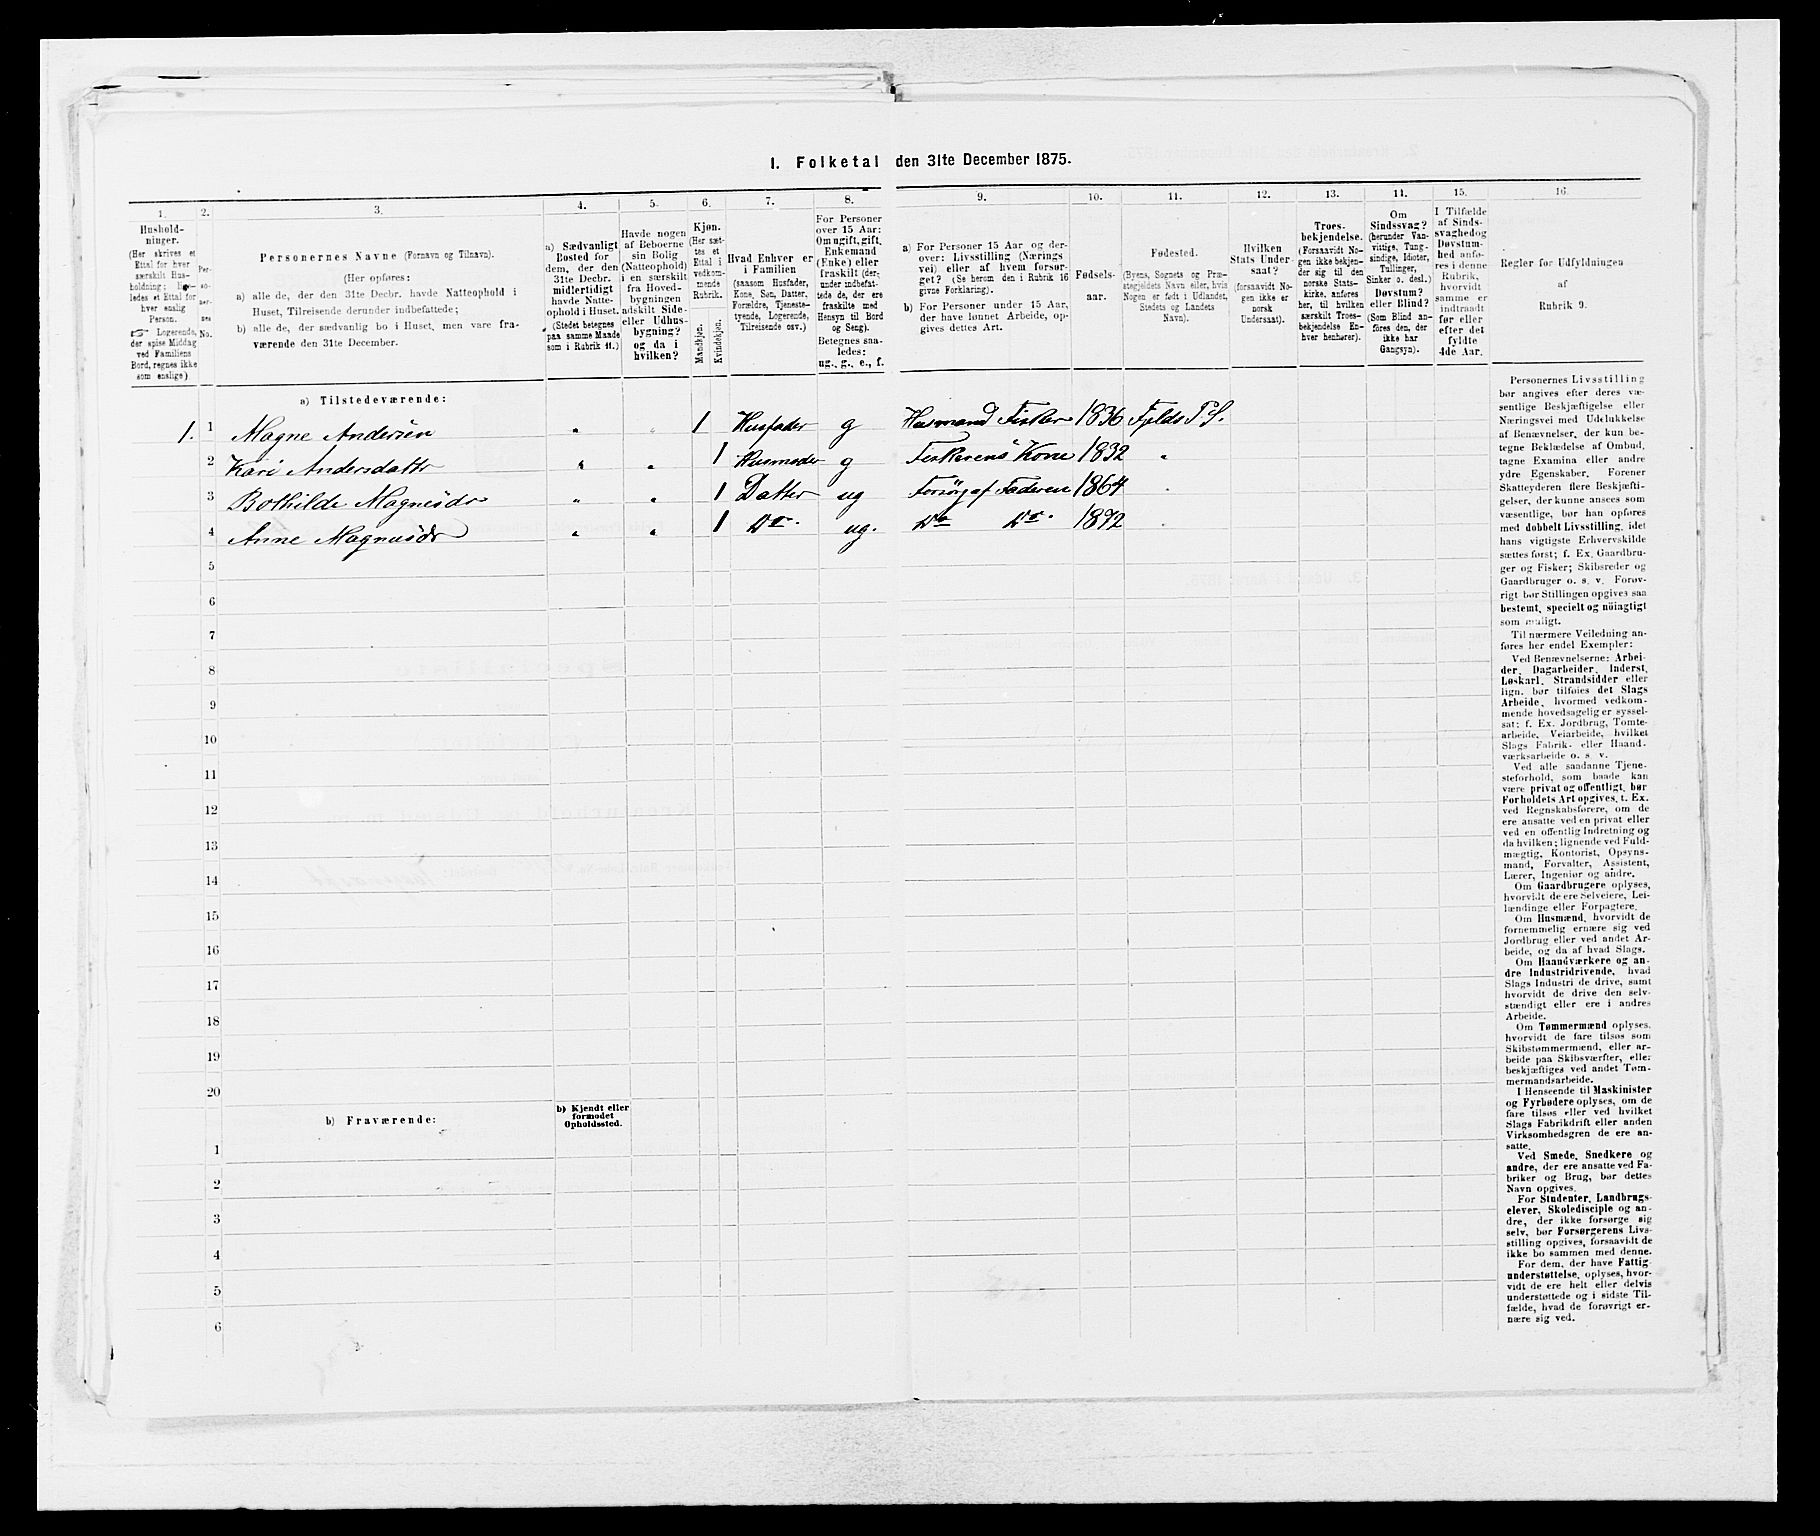 1. Folketal den 31te December 1875.
1. 2. 3. 4. 5. 6. 7. 8. 9. 10. 11. 12. 13. 14. 15. 16.
Hushold-
ninger.
(Her skrives et
Ettal for hver
særskilt Hus-
holdning; lige-
ledes et Ettal for
hver enslig
Person.
☞ Logerende,
der spise Middag
ved Familiens
Bord, regnes ikke
som enslige)
Per-
so-
ner-
nes
No.
Personernes Navne (Fornavn og Tilnavn).
(Her opføres:
a) alle de, der den 31te Decbr. havde Natteophold i
Huset, Tilreisende derunder indbefattede;
b) alle de, der sædvanlig bo i Huset, men vare fra-
værende den 31te December.
a) Sædvanligt
Bosted for
dem, der den
31te Decbr.
midlertidigt
havde Natte-
ophold i Huset.
(Stedet betegnes
paa samme Maade
som i Rubrik 11.)
Havde nogen
af Beboerne
sin Bolig
(Natteophold)
i en særskilt
fra Hoved-
bygningen
adskilt Side-
eller Udhus-
bygning?
og da i
hvilken?
Kjøn.
(Her sæt-
tes et
Ettal i
vedkom-
mende
Rubrik.
Mandkjøn.
Kvindekjøn.
Hvad Enhver er
i Familien
(saasom Husfader,
Kone, Søn, Datter,
Forældre, Tjeneste-
tyende, Logerende,
Tilreisende osv.)
For Personer
over 15 Aar:
Om ugift, gift,
Enkemand
(Enke) eller
fraskilt (der-
under indbefat-
tede de, der ere
fraskilte med
Hensyn til Bord
og Seng).
Betegnes saa-
ledes:
ug., g., e., f.
a) For Personer 15 Aar og der-
over: Livsstilling (Nærings
vei) eller af hvem forsør-
get? (Se herom den i Rubrik 16
givne Forklaring).
b) For Personer under 15 Aar,
der have lønnet Arbeide, op-
gives dettes Art.
Fødsels-
aar.
Fødested.
(Byens, Sognets og Præ-
stegjeldets Navn eller, hvis
Nogen er født i Udlandet,
Stedets og Landets
Navn).
Hvilken
Stats Under-
saat?
(forsaavidt No-
gen ikke er
norsk
Undersaat).
Troes-
bekjendelse.
(Forsaavidt No-
gen ikke bekjen-
der sig til den
norske Stats-
kirke, anføres
her, til hvilken
særskilt Troes-
bekjendelse En-
hver henhører).
Om
Sindssvag?
(herunder Van-
vittige, Tung-
sindige, Idioter,
Tullinger,
Sinker o. desl.)
Døvstum?
eller Blind?
(Som Blind an-
føres den, der
ikke har
Gangsyn).
I Tilfælde
af Sinds-
svaghed og
Døvstum-
hed anfø-
res i denne
Rubrik,
hvorvidt
samme er
indtraadt
før eller
efter det
fyldte
4de Aar.
Regler for Udfyldningen
af
Rubrik 9.
a) Tilstedeværende:
1. 1 Magne Andersen " " 1 Husfader g Husmand Fisker 1836 Fjelds P.S.
2 Kari Andersdattr " " 1 Husmoder g Fiskerens Kone 1832 "
3 Bothilde Magnesdr " " 1 Datter ug Forsørg af Faderen 1864 "
4 Anne Magnusdr " " 1 Do. ug. Do Do. 1872 "
5
6
7
8
9
10
11
12
13
14
15
16
17
18
19
20
b) Fraværende:
b) Kjendt eller
formodet
Opholdssted.
1
2
3
4
5
6
Personernes Livsstilling
bør angives efter deres væ-
sentlige Beskjæftigelse eller
Næringsvei med Udelukkelse
af Benævnelser, der kun be-
tegne Beklædelse af Ombud,
tagne Examina eller andre
ydre Egenskaber. Forener
Skatteyderen flere Beskjæfti-
gelser, der kunne ansees som
væsentlige, bør han opføres
med dobbelt Livsstilling, idet
hans vigtigste Erhvervskilde
sættes først; f. Ex. Gaardbru-
ger og Fisker; Skibsreder og
Gaardbruger o. s. v. Forøv-
rigt bør Stillingen opgives saa
bestemt, specielt og nöiagtigt
som muligt.
Til nærmere Veiledning an-
føres her endel Exempler:
Ved Benævnelserne: Arbei-
der, Dagarbeider, Inderst,
Løskarl, Strandsidder eller
lign. bør tilføies det Slags
Arbeide, hvormed vedkom-
mende hovedsagelig er syssel-
sat; f. Ex. Jordbrug, Tomte-
arbeide, Veiarbeide, hvilket
Slags Fabrik- eller Haand-
værksarbeide o. s. v.
Ved alle saadanne Tjene-
steforhold, som baade kan
være privat og offentligt, bør
Forholdets Art opgives, t. Ex.
ved Regnskabsførere, om de
ere ansatte ved en privat eller
ved en offentlig Indretning og
da hvilken; lignende ved Fuld-
mægtig, Kontorist, Opsyns-
mand, Forvalter, Assistent,
Lærer, Ingeniør og andre.
Om Gaardbrugere oplyses,
hvorvidt de ere Selveiere, Lei-
lændinge eller Forpagtere.
Om Husmænd, hvorvidt de
fornemmelig ernære sig ved
Jordbrug eller ved andet Ar-
beide, og da af hvad Slags.
Om Haandværkere og an-
dre Industridrivende, hvad
Slags Industri de drive, samt
hvorvidt de drive den selv-
stændigt eller ere i andres
Arbeide.
Om Tømmermænd oplyses,
hvorvidt de fare tilsøs som
Skibstømmermænd, eller ar-
beide paa Skibsværfter, eller
beskjæftiges ved andet Tøm-
mermandsarbeide.
I Henseende til Maskinister
og Fyrbødere oplyses, om de
fare tilsøs eller ved hvilket
Slags Fabrikdrift eller anden
Virksomhedsgren de ere an-
satte.
Ved Smede, Snedkere og
andre, der ere ansatte ved Fa-
briker og Brug, bør dettes
Navn opgives.
For Studenter, Landbrugs-
elever, Skoledisciple og an-
dre, der ikke forsørge sig
selv, bør Forsørgerens Livs-
stilling opgives, forsaavidt de
ikke bo sammen med denne.
For dem, der have Fattig-
understøttelse, oplyses, hvor-
vidt de ere helt eller delvis
understøttede og i sidste Til-
fælde, hvad de forøvrigt er-
nære sig ved.